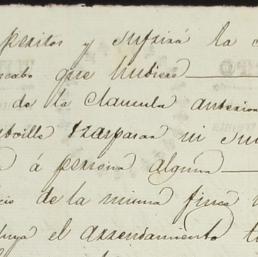 peritos y sufrirá la
que hubiere
de la clausula anterior
traspasar ni
á persona alguna
de la misma finca
el arrendamiento